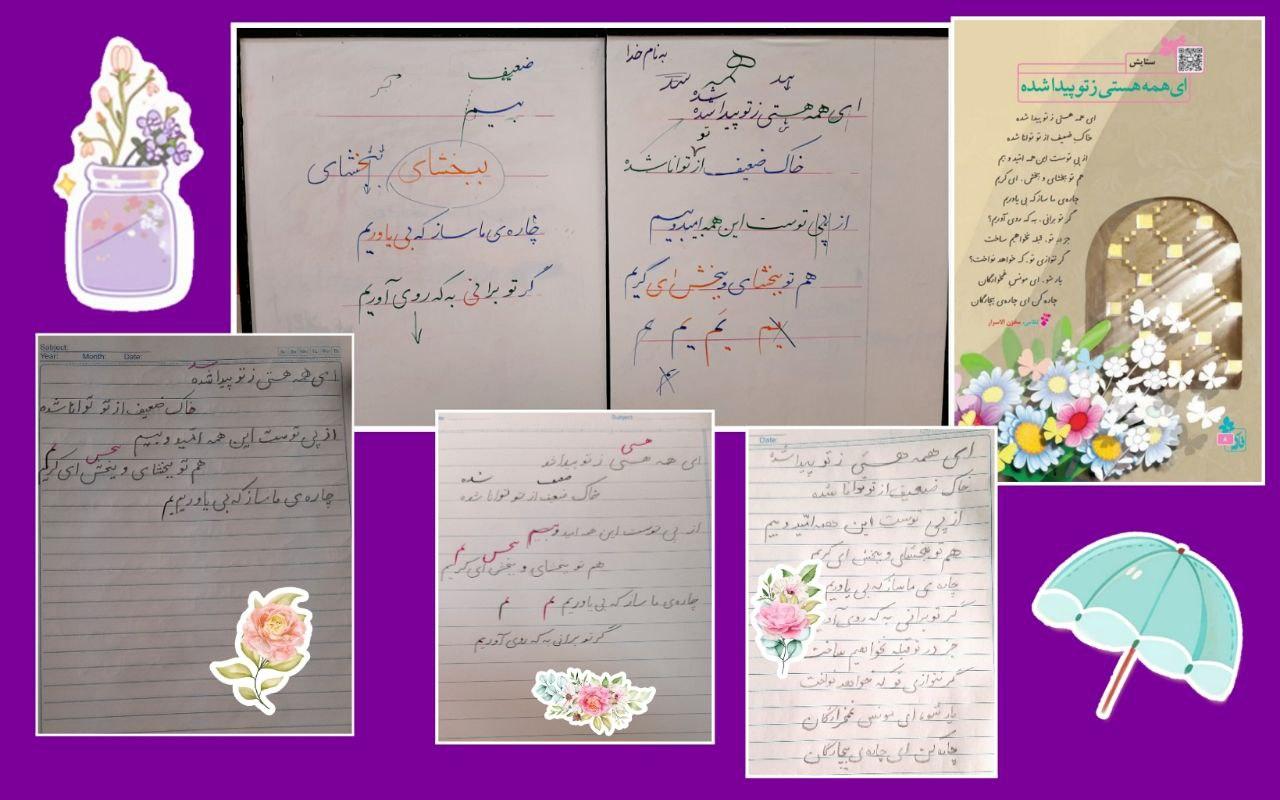 به نام خدا
همه
ای همه هستی ز تو پیدا شده
شده
تو
خاک ضعیف از توانا شده
از پی توست این همه امید و بیم
هم تو ببخشای و ببخش ای کریم
یم یم یم یم
ضعیف
بیم
ببخشای ببخشای
چاره‌ی ما ساز که بی یاوریم
گر تو برانی به که روی آوریم
ستایش
ای همه هستی ز تو پیدا شده
ای همه هستی ز تو پیدا شده
خاک ضعیف از تو توانا شده
از پی توست این همه امّید و بیم
هم تو ببخشای و ببخش، ای کریم
چاره‌ی ما ساز که بی یاوریم
گر تو برانی، به که روی آوریم؟
جز در تو، قبله نخواهیم ساخت
گر ننوازی تو، که خواهد نواخت؟
یار شو، ای مونس غمخوارگان
چاره کن ای چاره‌ی بیچارگان
نظامی، مخزن الاسرار
۸
Subject:
Year: Month: Date:
ای همه هستی ز تو پیدا شده
خاک ضعیف از تو توانا شده
از پی توست این همه امّید و بیم
هم تو ببخشای و ببخش ای کریم
چاره‌ی ما ساز که بی یاوریم یم
Subject:
هستی
ای همه هستی ز تو پیدا شده
ضعیف شده
خاک ضعیف از تو توانا شده
از پی توست این همه امید و بیم
ببخش یم
هم تو ببخشای و ببخش ای کریم
چاره‌ی ما ساز که بی یاوریم یم م
گر تو برانی به که روی آوریم
Date:
ای همه هستی ز تو پیدا شده
خاک ضعیف از تو توانا شده
از پی توست این همه امّید و بیم
هم تو ببخشای و ببخش ای کریم
چاره ی ما ساز که بی یاوریم
گر تو برانی به که روی آو
جز در تو قبله نخواهیم ساخت
گر ننوازی تو که خواهد نواخت
یار شو، ای مونس غمخوارگان
چاره کن ای چاره‌ی بیچارگان